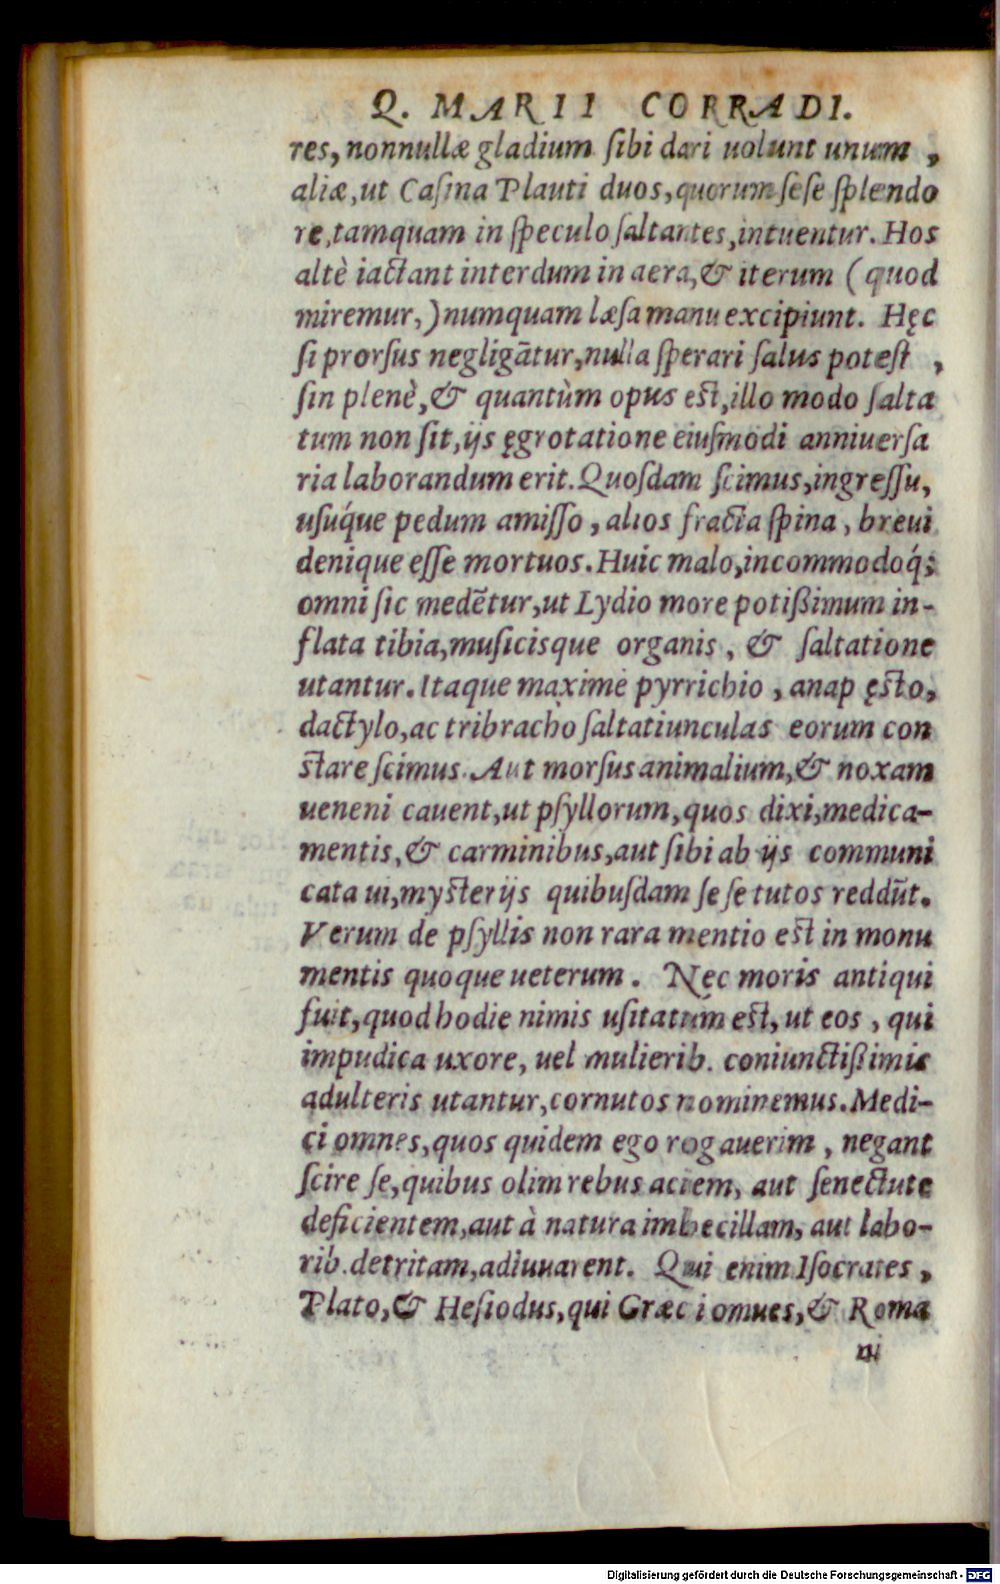 Q. MARII CORRADI.
res, nonnullæ gladium ſibi dari uolunt unum ,
aliæ,ut Caſina Plauti duos,quorum ſeſe ſplendo
re,tamquam in ſpeculo ſaltantes,intuentur. Hos
altè iactant interdum in aera,& iterum (quod
miremur,)numquam læſa manu excipiunt. Hęc
ſi prorſus negligātur,nulla ſperari ſalus poteſt ,
ſin plenè,& quantùm opus eſt,illo modo ſalta
tum non ſit,ijs ęgrotatione eiuſmodi anniuerſa
ria laborandum erit.Quoſdam ſcimus,ingreſſu,
uſuq́ue pedum amiſſo, alios fracta ſpina, breui
denique eſſe mortuos.Huic malo,incommodoq́;
omni ſic medētur,ut Lydio more potißimum in-
flata tibia,muſicisque organis, & ſaltatione
utantur.Itaque maxime pyrrichio, anap ęſto,
dactylo,ac tribracho ſaltatiunculas eorum con
ſtare ſcimus. Aut morſus animalium,& noxam
ueneni cauent,ut pſyllorum,quos dixi,medica-
mentis,& carminibus,aut ſibi ab ijs communi
cata ui,myſterijs quibuſdam ſe ſe tutos reddūt.
Verum de pſyllis non rara mentio eſt in monu
mentis quoque ueterum. Nęc moris antiqui
fuit,quod hodie nimis uſitatum eſt, ut eos, qui
impudica uxore, uel mulierib. coniunctißimis
adulteris utantur,cornutos nominemus.Medi-
ci omnes,quos quidem ego rogauerim, negant
ſcire ſe,quibus olim rebus aciem, aut ſenectute
deficientem,aut à natura imbecillam, aut labo-
rib.detritam,adiuuarent. Qui enim Iſocrates,
Plato,& Heſiodus,qui Græci omnes,& Roma
ni
Digitalisierung gefördert durch die Deutsche Forschungsgemeinschaft - DFG